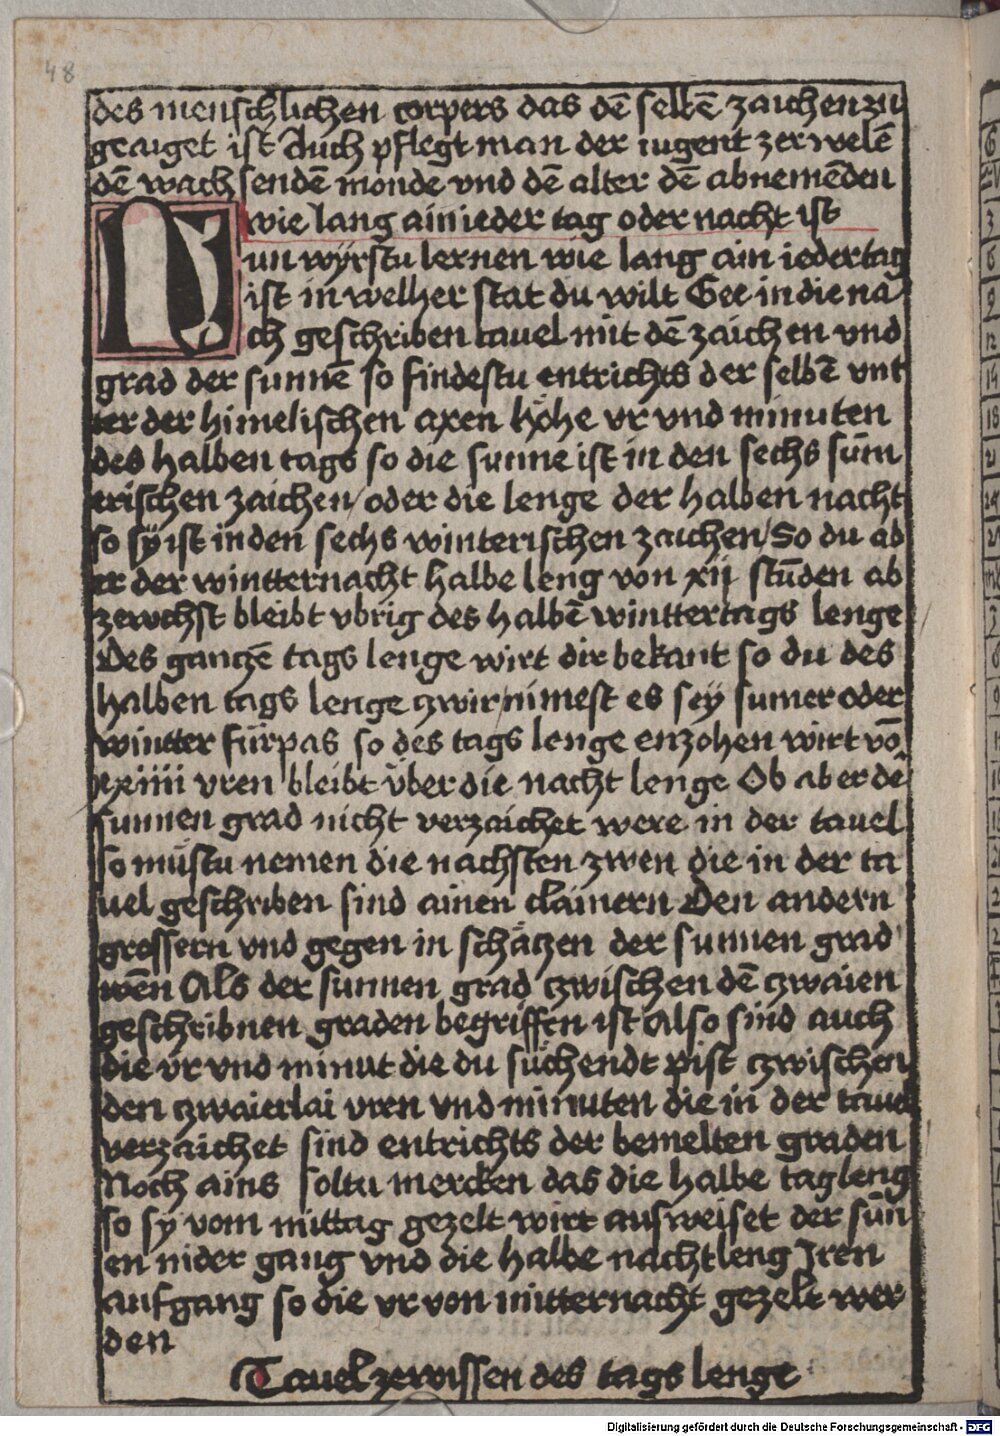 48
des menschlichen corpers das dē selbē zaichen zu
geaiget ist Auch pflegt man der iugent zerwelē
dē wachsendē monde vnd dē alter dē abnemēden
wie lang ain ieder tag oder nacht ist
Nun wyrstu lernen wie lang ain ieder tag
ist in welher stat du wilt Gee in die na
ch geschriben tauel mit dē zaichen vnd
grad der sunnē so findestu entrichts der selbē vnt
ter der himelischen axen höhe vr vnd minuten
des halben tags so die sunne ist in den sechs sūm
erischen zaichen/oder die lenge der halben nacht
so sy ist in den sechs winterischen zaichen/So du ab
er der wintternacht halbe leng von xij stūden ab
zewchst bleibt vbrig des halbē winttertags lenge
Des ganczē tags lenge wirt dir bekant so du des
halben tags lenge zwir nimest es sey sumer oder
wintter fürpas so des tags lenge enzohen wirt vō
xxiiii vren bleibt über die nacht lenge Ob aber dē
sunnen grad nicht verzaichet were in der tauel
so müstu nemen die nachsten zwen die in der ta
uel geschriben sind ainen clainern Den andern
grossern vnd gegen in schäczen der sunnen grad
wēn Als der sunnen grad czwischen dē czwaien
geschribnen graden begriffen ist Also sind auch
die vr vnd minut die du süchendt pist czwischen
den czwaierlai vren vnd minuten die in der tauel
verzaichet sind entrichts der bemelten graden
Noch ains soltu mercken das die halbe tagleng
so sy vom mittag gezelt wirt ausweiset der sūn
en nider gang vnd die halbe nachtleng Iren
aufgang so die vr von mitternacht gezelt wer
den
Tauel zewissen des tags lenge
Digitalisierung gefördert durch die Deutsche Forschungsgemeinschaft - DFG